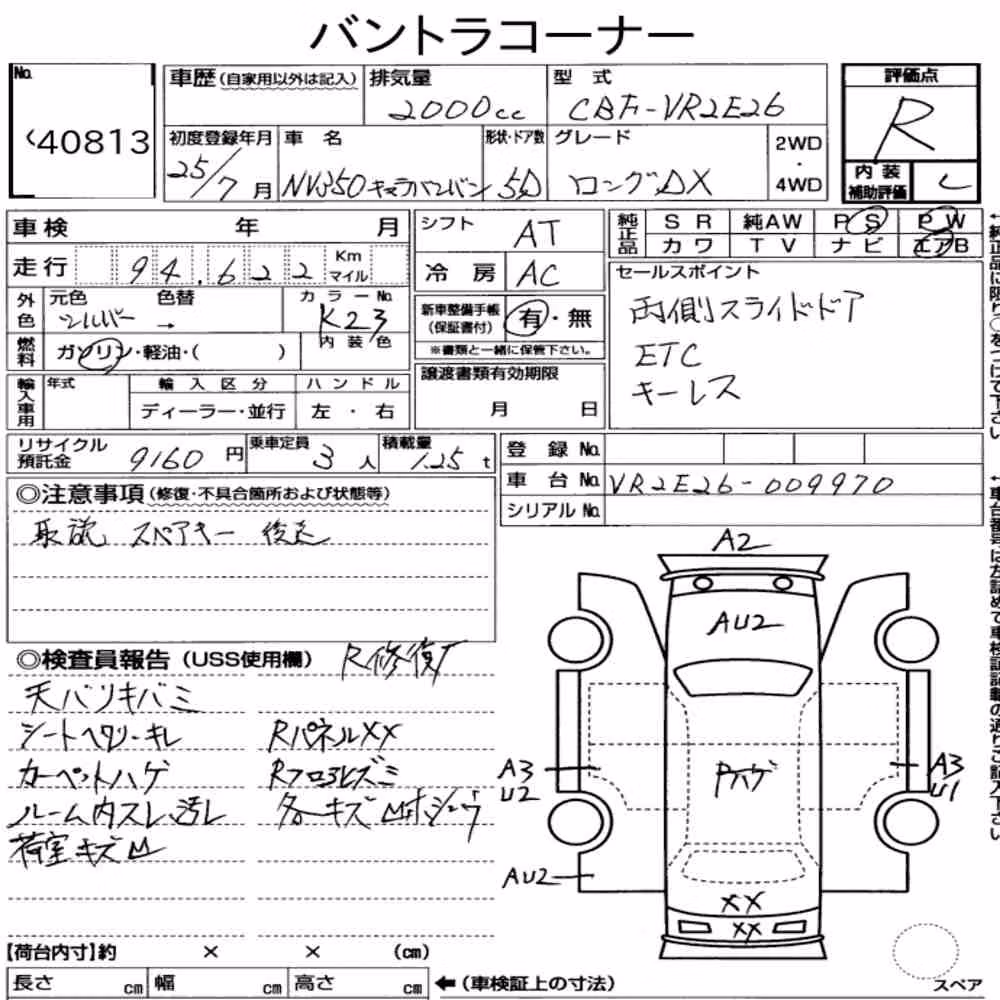 バントラコーナー
No.
40813
車歴(自家用以外は記入)
排気量
2000cc
型 式
CBF-VR2E26
評価点
R
初度登録年月
25/7月
車 名
NV350キャラバンバン
形状・ドア数
5D
グレード
ロングDX
2WD
・
4WD
内 装
補助評価
C
車検 年 月
走行 94,622 Km
マイル
シフト AT
冷 房 AC
純正品
S R 純AW P S P W
カワ T V ナビ エアB
セールスポイント
両側スライドドア
ETC
キーレス
外色
元色 色替
シルバー →
カラーNo.
K23
内装色
燃料
ガソリン・軽油・( )
新車整備手帳
(保証書付)
有・無
※書類と一緒に保管下さい。
譲渡書類有効期限
月 日
輸入車用
年式
輸入区分
ハンドル
ディーラー・並行
左 ・ 右
リサイクル
預託金
9160 円
乗車定員
3 人
積載量
1.25 t
登 録 No.
車 台 No. VR2E26-009970
シリアル No.
◎注意事項(修復・不具合箇所および状態等)
取説 スペアキー 後送
◎検査員報告(USS使用欄) R修復
天バリキバミ
シートヘタリ・キレ
カーペットハゲ
ルーム内スレ、汚レ
荷室キズ凹
RパネルXX
Rフロアヒズミ
各キズ凹
A2
AU2
Rハゲ
A3
U2
A3
U1
AU2
XX
XX
スペア
【荷台内寸】約 × × (cm)
長さ cm 幅 cm 高さ cm
←(車検証上の寸法)
↑純正品に限り○をつけて下さい